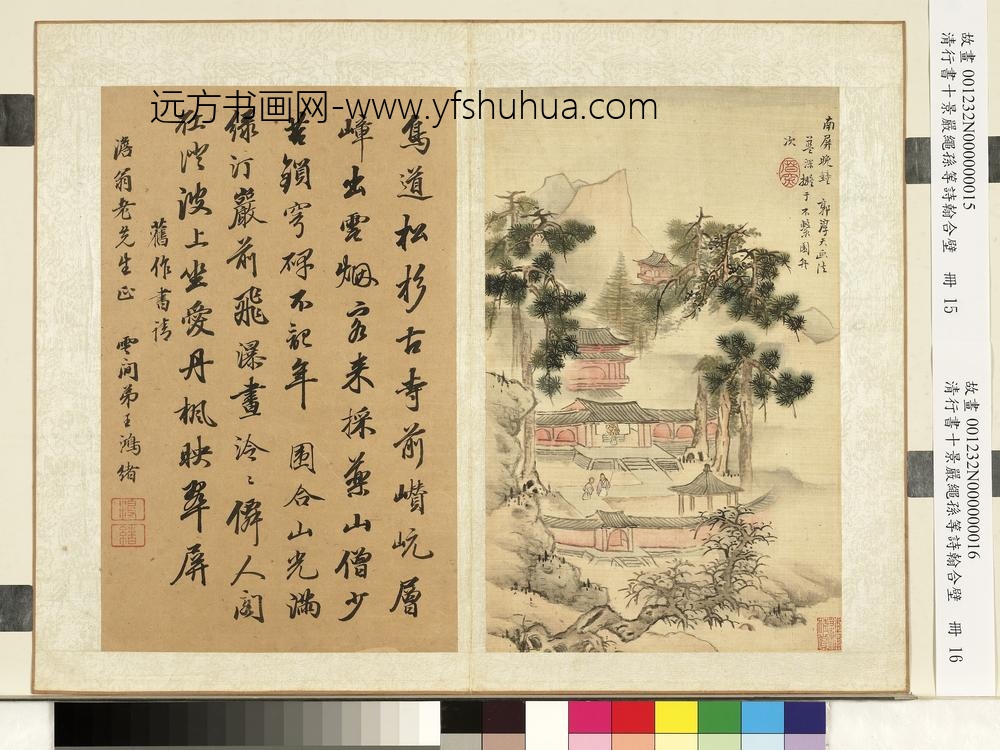 远方书画网-www.yfshuhua.com
南屏晚鐘 郭厚夫画法
墓深擬于不繫園舟
次
鳥道松杉古寺前巑岏層
嶂出雲烟客来採藥山僧少
苔鎖穹碑不記年 圍合山光滿
綠汀巖前飛瀑畫泠〻僻人閣
在澄波上坐愛丹楓映翠屏
舊作書請
澹翁老先生正 雲間弟王鴻緒
故畫 001232N000000015
清行書十景嚴繩孫等詩翰合璧 冊 15
故畫 001232N000000016
清行書十景嚴繩孫等詩翰合璧 冊 16